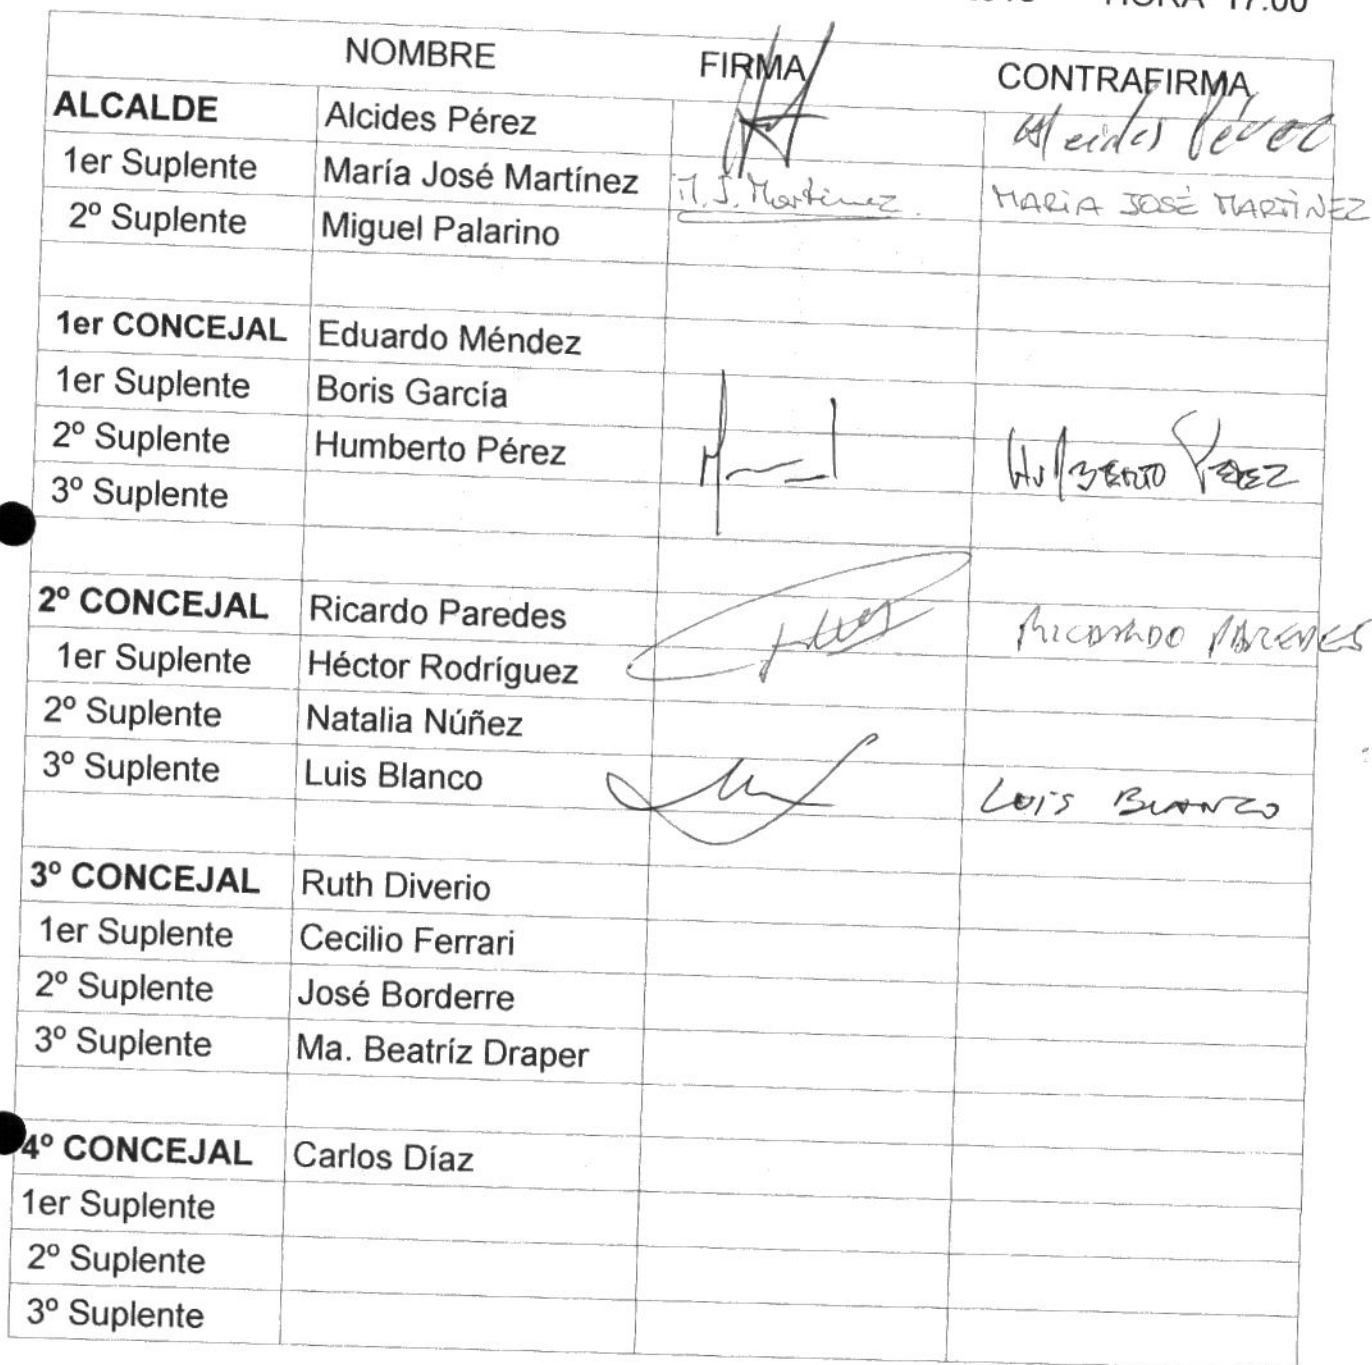 HORA 17:00
NOMBRE FIRMA CONTRAFIRMA
ALCALDE Alcides Pérez Alcides Pérez
1er Suplente María José Martínez M. J. Martínez. MARÍA JOSÉ MARTÍNEZ
2º Suplente Miguel Palarino
1er CONCEJAL Eduardo Méndez
1er Suplente Boris García
2º Suplente Humberto Pérez HUMBERTO PÉREZ
3º Suplente
2º CONCEJAL Ricardo Paredes RICARDO PAREDES
1er Suplente Héctor Rodríguez
2º Suplente Natalia Núñez
3º Suplente Luis Blanco LUIS BLANCO
3º CONCEJAL Ruth Diverio
1er Suplente Cecilio Ferrari
2º Suplente José Borderre
3º Suplente Ma. Beatríz Draper
4º CONCEJAL Carlos Díaz
1er Suplente
2º Suplente
3º Suplente